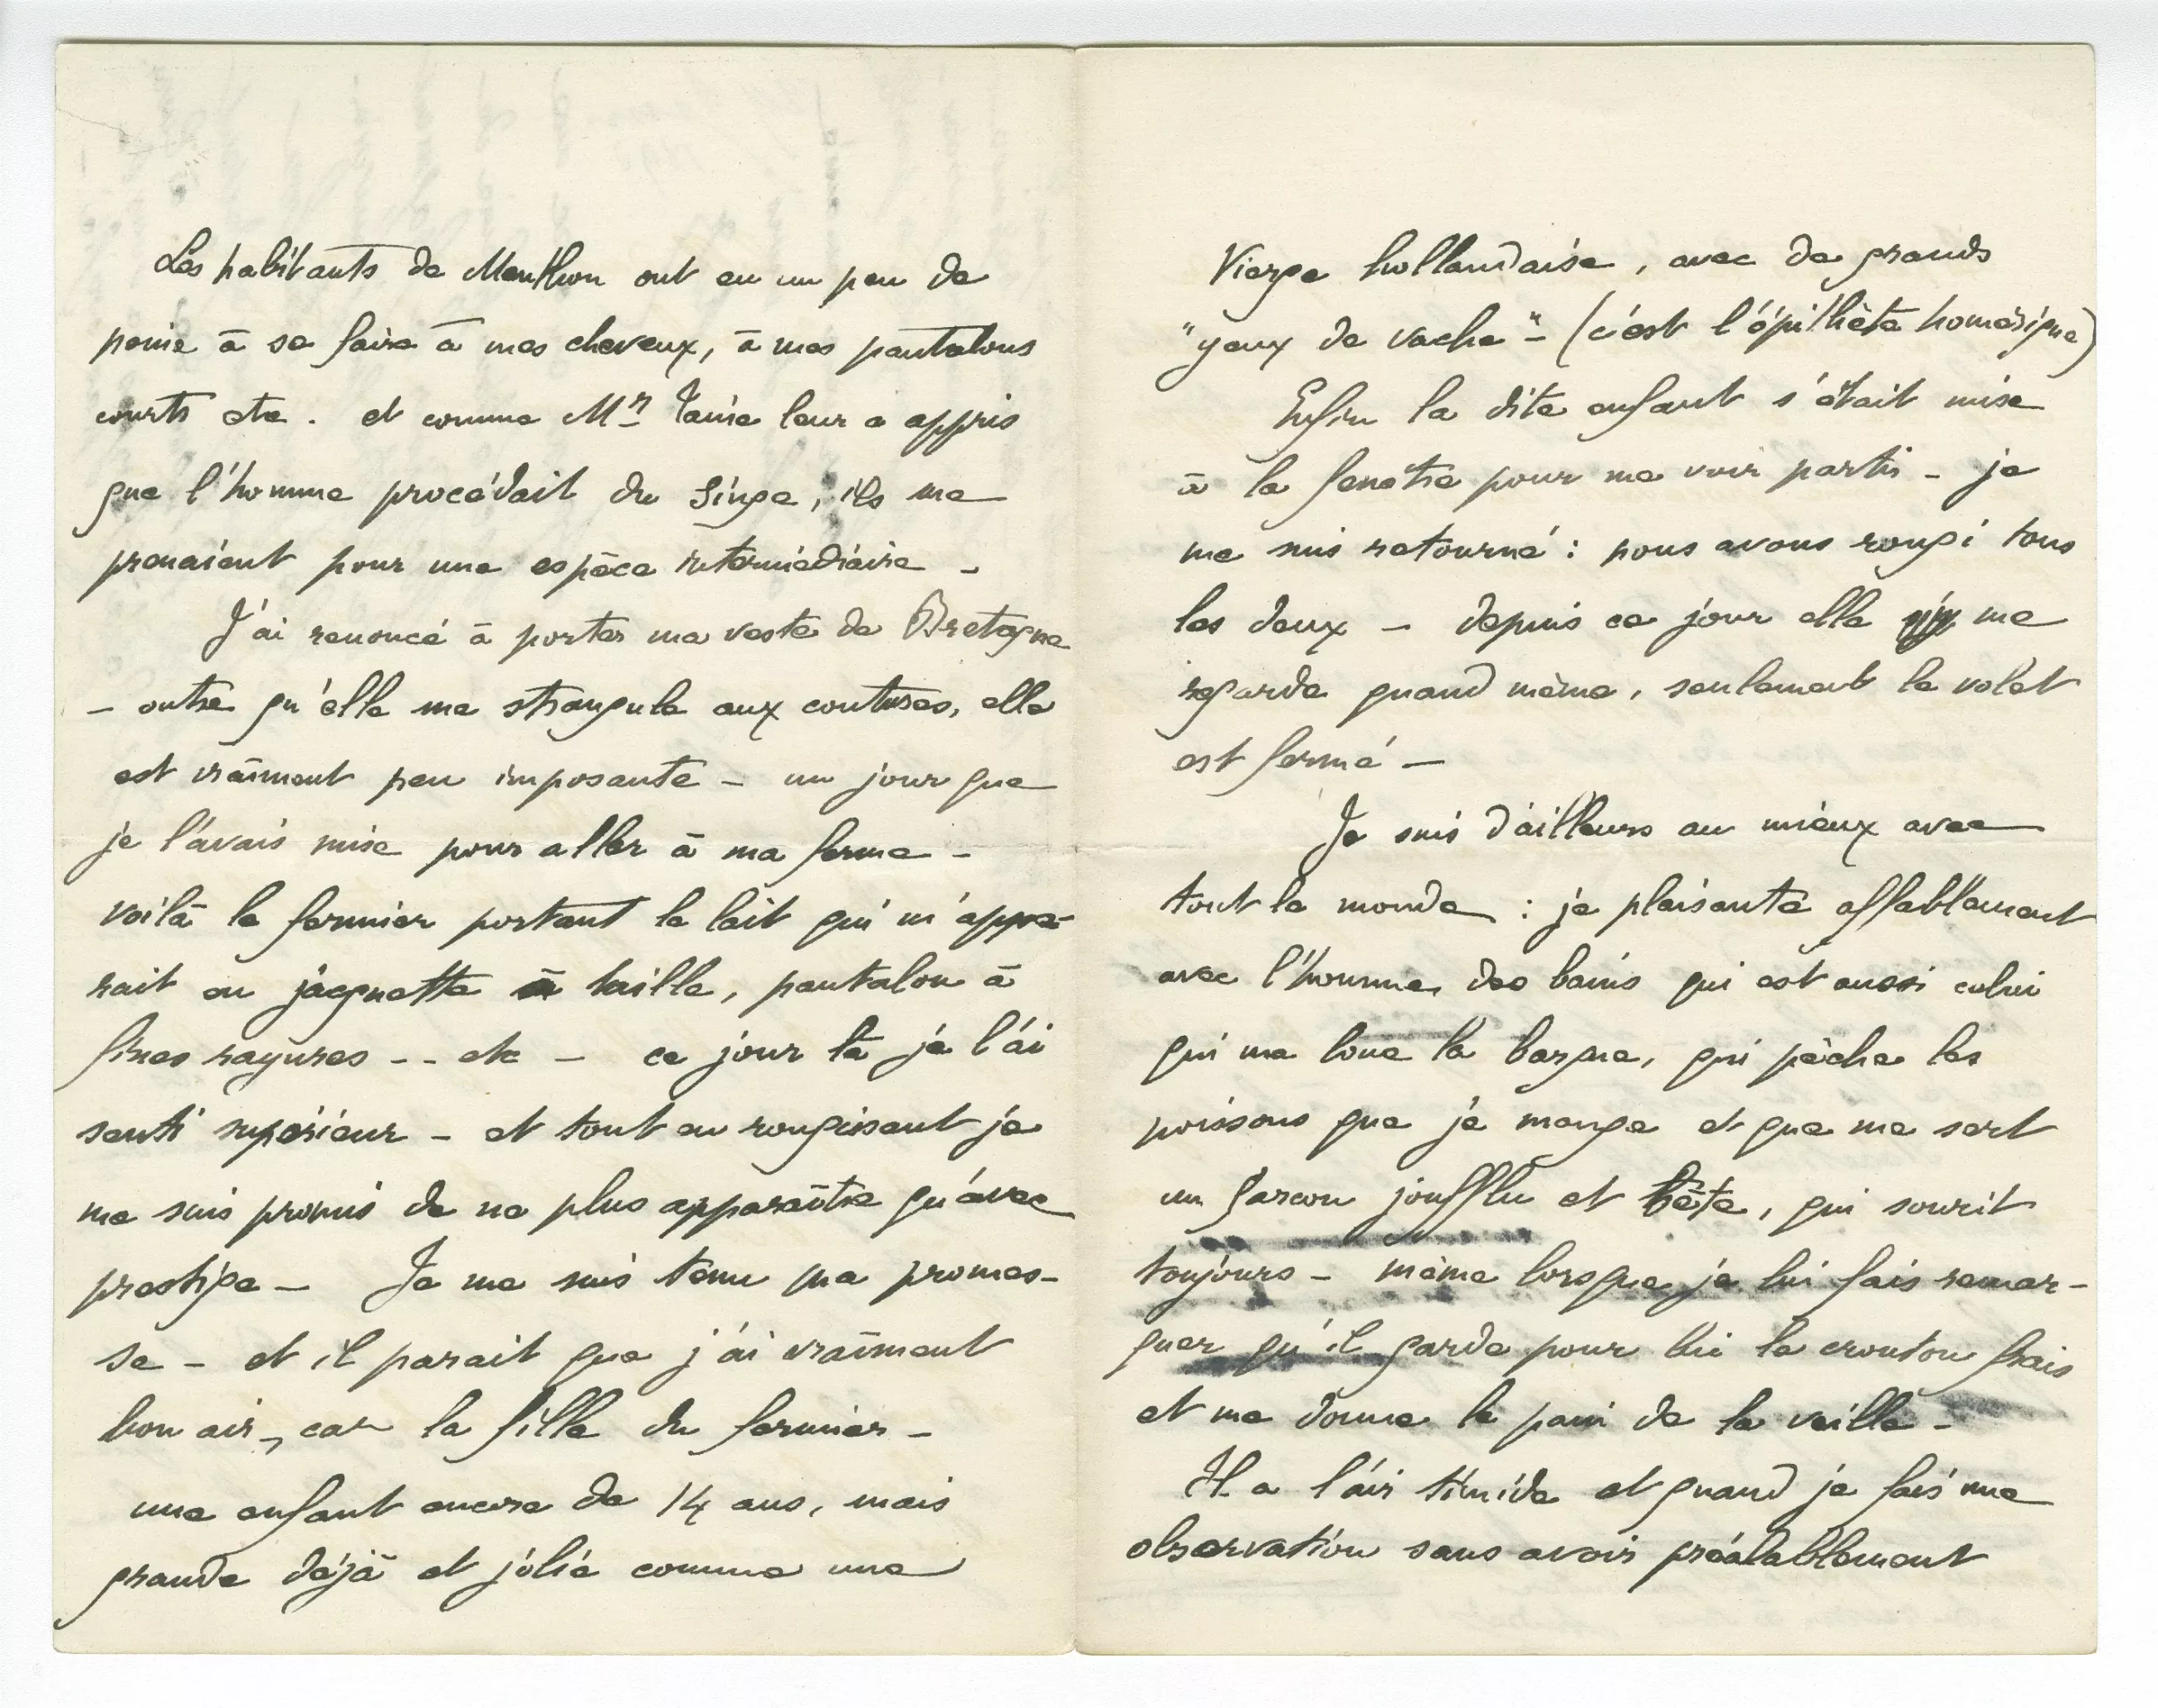 Les habitants de Menthon ont eu un peu de
peine à se faire à mes cheveux, à mes pantalons
courts etc. et comme Mr Taine leur a appris
que l'homme procédait du singe, ils me
prenaient pour une espèce intermédiaire –
J'ai renoncé à porter ma veste de Bretagne
– outre qu'elle me strangule aux coutures, elle
est vraiment peu imposante – un jour que
je l'avais mise pour aller à ma ferme –
voilà le fermier portant le lait qui m'appa-
rait en jaquette à taille, pantalon à
fines rayures -- etc – ce jour là je l'ai
senti supérieur – et tout en rougissant je
me suis promis de ne plus apparaître qu'avec
prestige – Je me suis tenu ma promes-
se – et il parait que j'ai vraiment
bon air –, car la fille du fermier –
une enfant encore de 14 ans, mais
grande déjà et jolie comme une
Vierge hollandaise, avec de grands
"yeux de vache" – (c'est l'épithète homérique)
Enfin la dite enfant s'était mise
à la fenêtre pour me voir partir – je
me suis retourné : nous avons rougi tous
les deux – depuis ce jour elle me
regarde quand même, seulement le volet
est fermé –
Je suis d'ailleurs au mieux avec
tout le monde : je plaisante affablement
avec l'homme des bains qui est aussi celui
qui me loue la barque, qui pèche les
poissons que je mange et que me sert
un garcon joufflu et bête, qui sourit
toujours – même lorsque je lui fais remar-
quer qu'il garde pour lui le crouton frais
et me donne le pain de la veille –
Il a l'air timide et quand je fais une
observation sans avoir préalablement